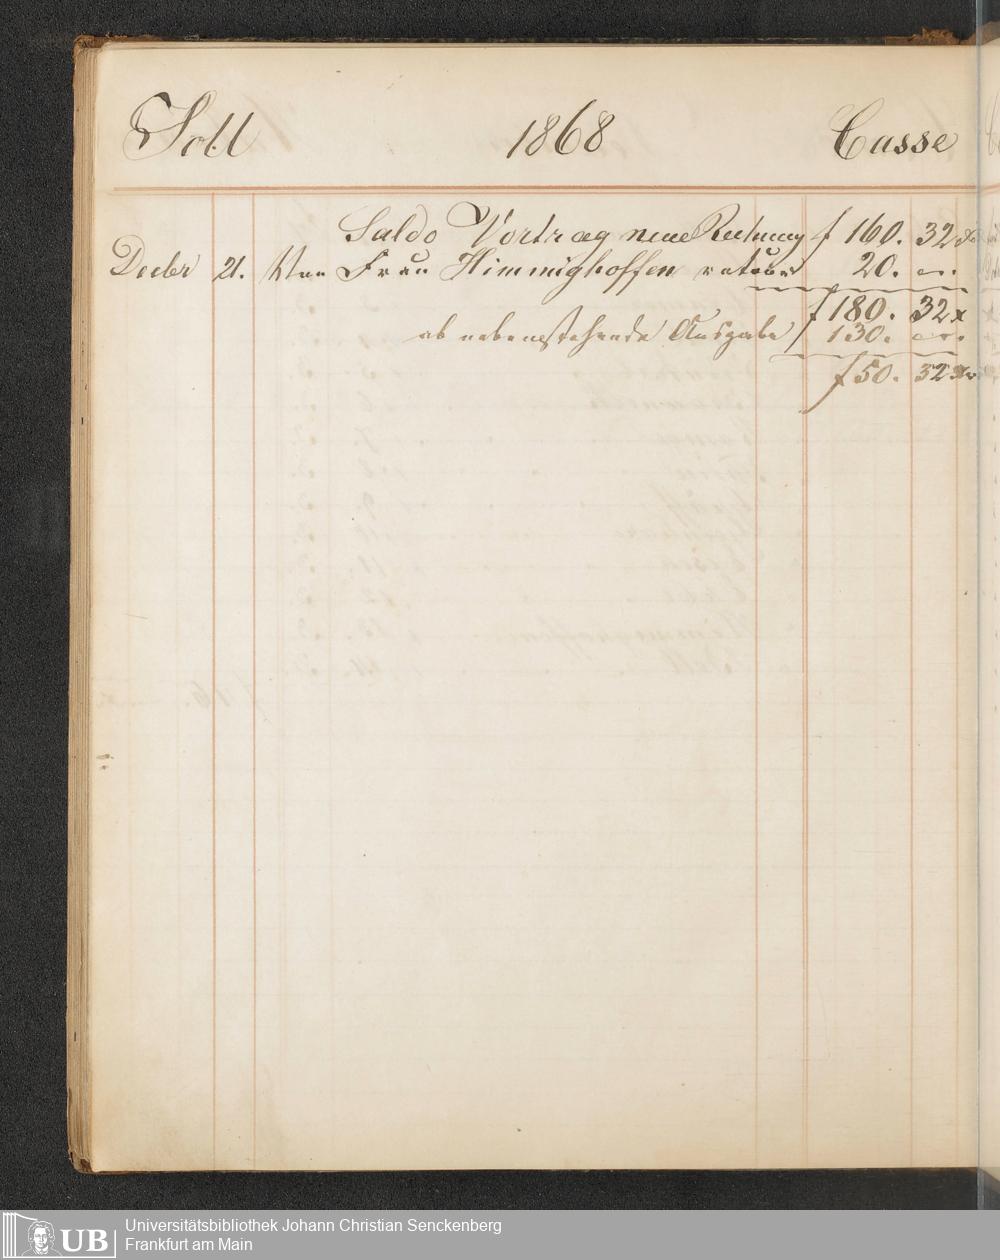 Soll 1868 Casse
Saldo Vortrag neue Rechnung f 160. 32 xr
Decbr 21. Von Frau Himmighoffen 20. —.
f 180. 32 x
ab nebenstehende Ausgabe f 130. —.
f 50. 32 xr
UB
Universitätsbibliothek Johann Christian Senckenberg
Frankfurt am Main